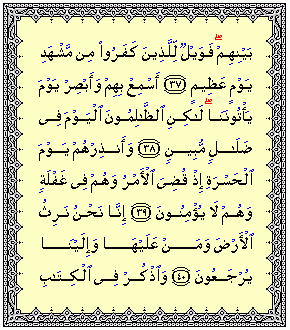 بَيْنِهِمْ ۖ فَوَيْلٌ لِّلَّذِينَ كَفَرُوا۟ مِن مَّشْهَدِ
يَوْمٍ عَظِيمٍ ﴿٣٧﴾ أَسْمِعْ بِهِمْ وَأَبْصِرْ يَوْمَ
يَأْتُونَنَا ۖ لَٰكِنِ ٱلظَّٰلِمُونَ ٱلْيَوْمَ فِى
ضَلَٰلٍ مُّبِينٍ ﴿٣٨﴾ وَأَنذِرْهُمْ يَوْمَ
ٱلْحَسْرَةِ إِذْ قُضِىَ ٱلْأَمْرُ وَهُمْ فِى غَفْلَةٍ
وَهُمْ لَا يُؤْمِنُونَ ﴿٣٩﴾ إِنَّا نَحْنُ نَرِثُ
ٱلْأَرْضَ وَمَنْ عَلَيْهَا وَإِلَيْنَا
يُرْجَعُونَ ﴿٤٠﴾ وَٱذْكُرْ فِى ٱلْكِتَٰبِ